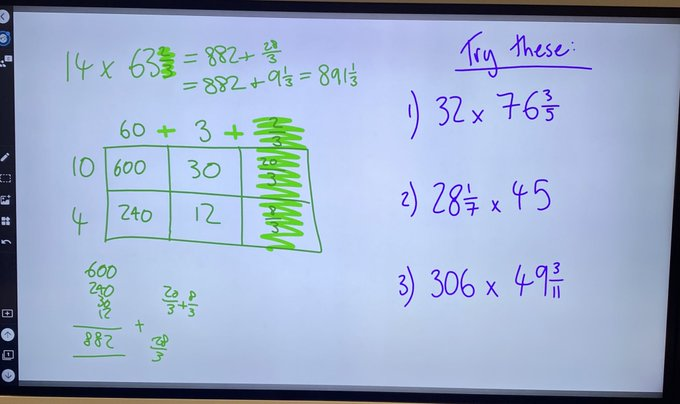 14 × 63 2/3 = 882 + 28/3
= 882 + 9 1/3 = 891 1/3
60 + 3 + 2/3
10 600 30 20/3
4 240 12
600
240
30
12
882
20/3 + 8/3
+ 28/3
Try these:
1) 32 × 76 3/5
2) 28 1/7 × 45
3) 306 × 49 3/11